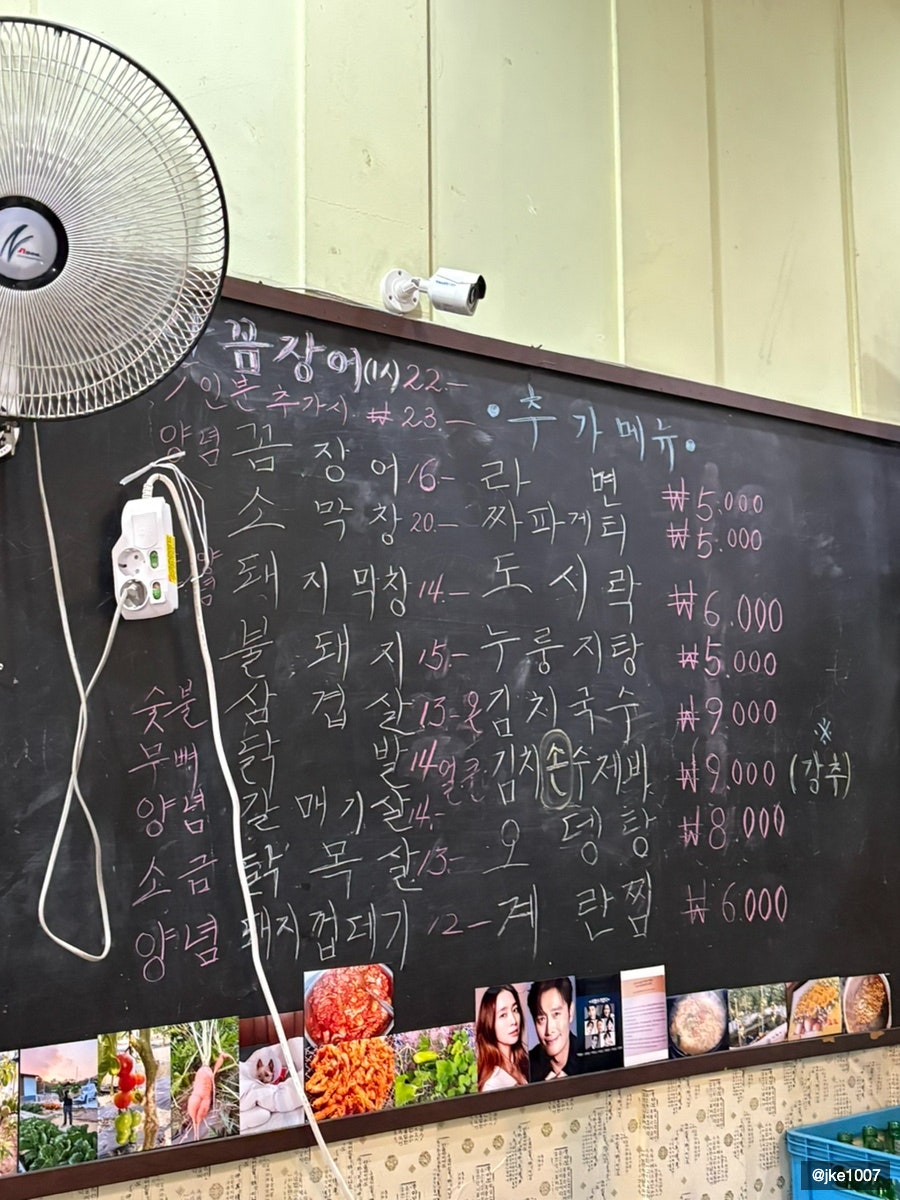 꼼장어(1人) 22.-
1인분 추가시 ₩ 23.-
양념 꼼장어 16-
소막창 20.-
돼지 막창 14.-
불돼지 15.-
숯불 삼겹살 13-
무뼈 닭발 14
양념 갈매기살 14.-
소금 닭목살 13.-
양념 돼지껍데기 12-
•추가메뉴•
라면 ₩5.000
짜파게티 ₩5.000
도시락 ₩6.000
누룽지탕 ₩5.000
김치국수 ₩9.000
얼큰 김치손수제비 ₩9.000 (강추)
오뎅탕 ₩8.000
계란찜 ₩6.000
@jke1007